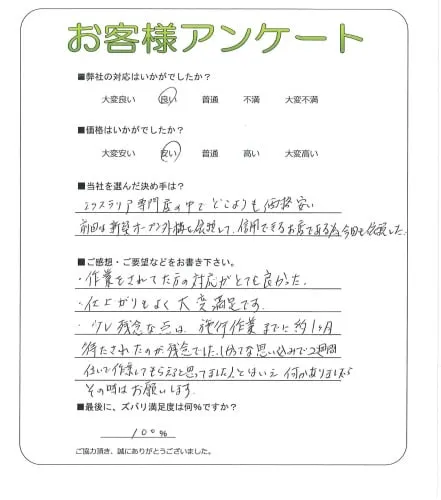 お客様アンケート
■弊社の対応はいかがでしたか？
大変良い 良い 普通 不満 大変不満
■価格はいかがでしたか？
大変安い 安い 普通 高い 大変高い
■当社を選んだ決め手は？
エクステリア専門店の中でどこよりも価格安い
前回も新築オープン外構を依頼して、信用できるお店である為今回も依頼した。
■ご感想・ご要望などをお書き下さい。
・作業をされてた方の対応がとても良かった。
・仕上がりもよく大変満足です。
・少し残念な点は、施行作業までに約1ヶ月
待たされたのが残念でした。勝手な思い込みで2週間
位いで作業してもらえると思ってました とはいえ 何かありましたら
その時はお願いします。
■最後に、ズバリ満足度は何％ですか？
100％
ご協力頂き、誠にありがとうございました。